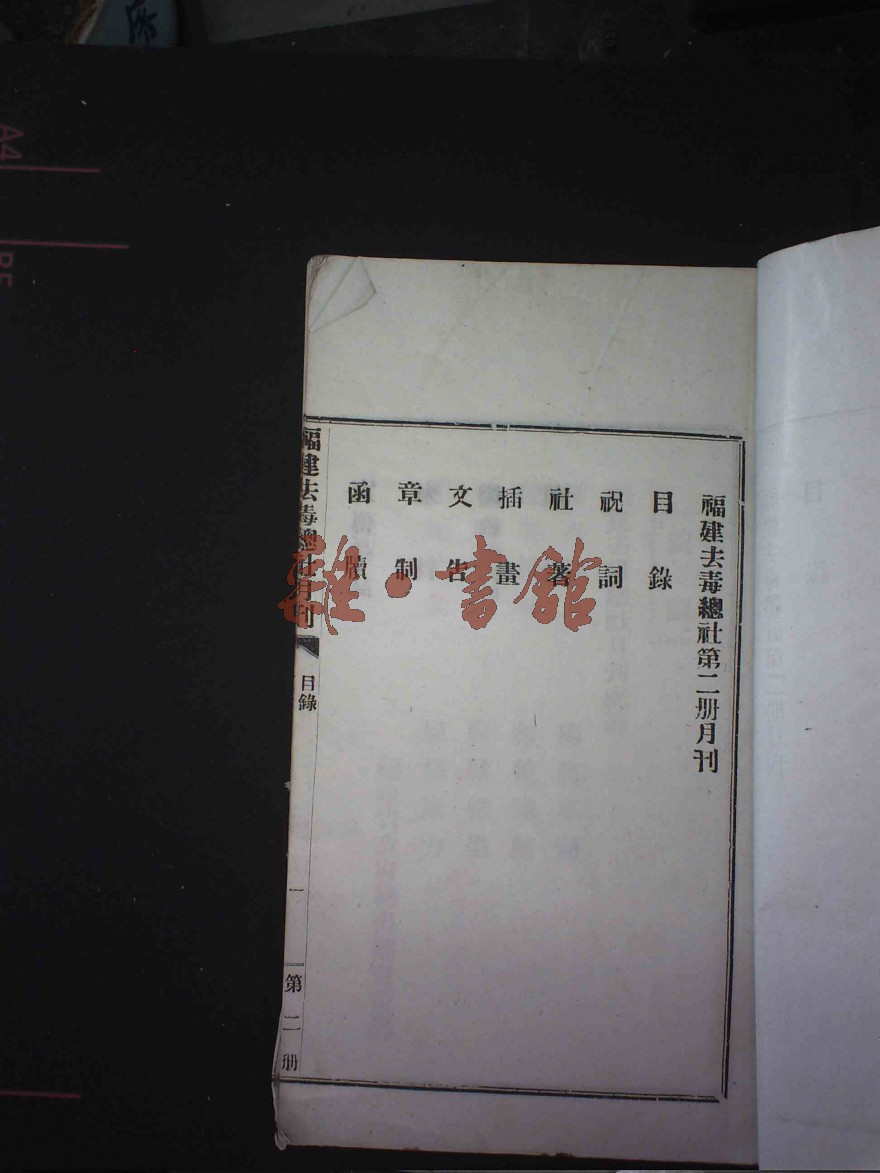 福建去毒總社第二册月刊
目錄
祝詞
社著
插畫
文告
章制
函牘
福建去毒總社月刊
目錄
一
第二册
雜·書館
A4
B5